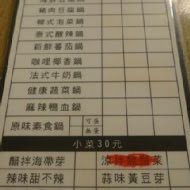 豬肉豆腐鍋
韓式泡菜鍋
泰式酸辣鍋
新鮮番茄鍋
咖哩椰香鍋
法式牛奶鍋
健康蔬菜鍋
麻辣鴨血鍋
原味素食鍋
小菜30元
醋拌海帶芽
涼
辣味甜不辣
蒜味黃豆芽